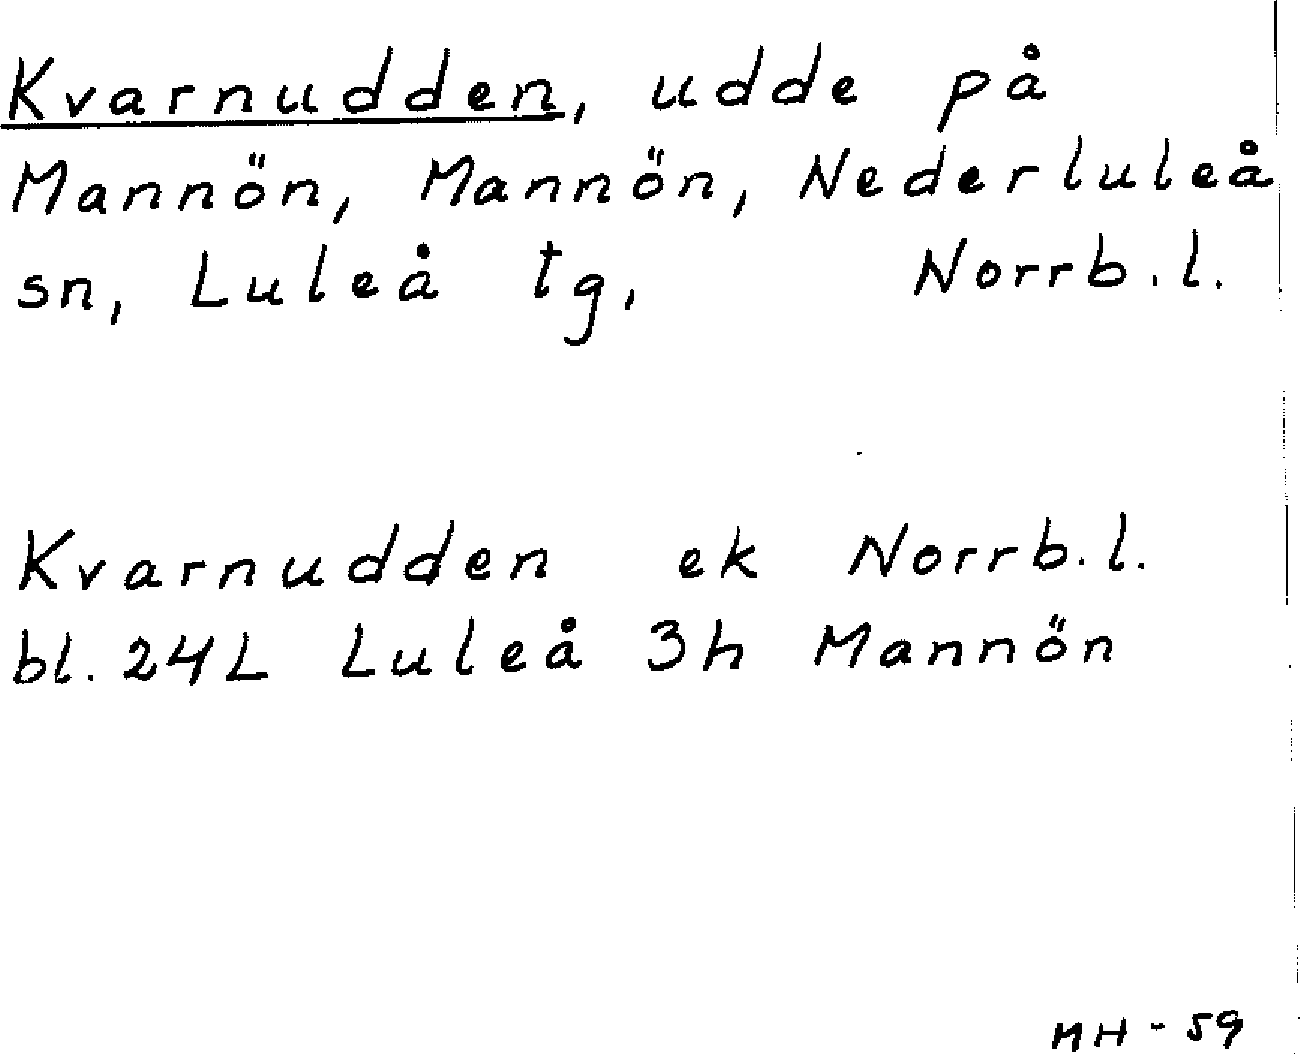 Kvarnudden, udde på
Mannön, Mannön, Nederluleå
sn, Luleå tg, Norrb.l.
Kvarnudden ek Norrb.l.
bl. 24L Luleå 3h Mannön
MH - 59